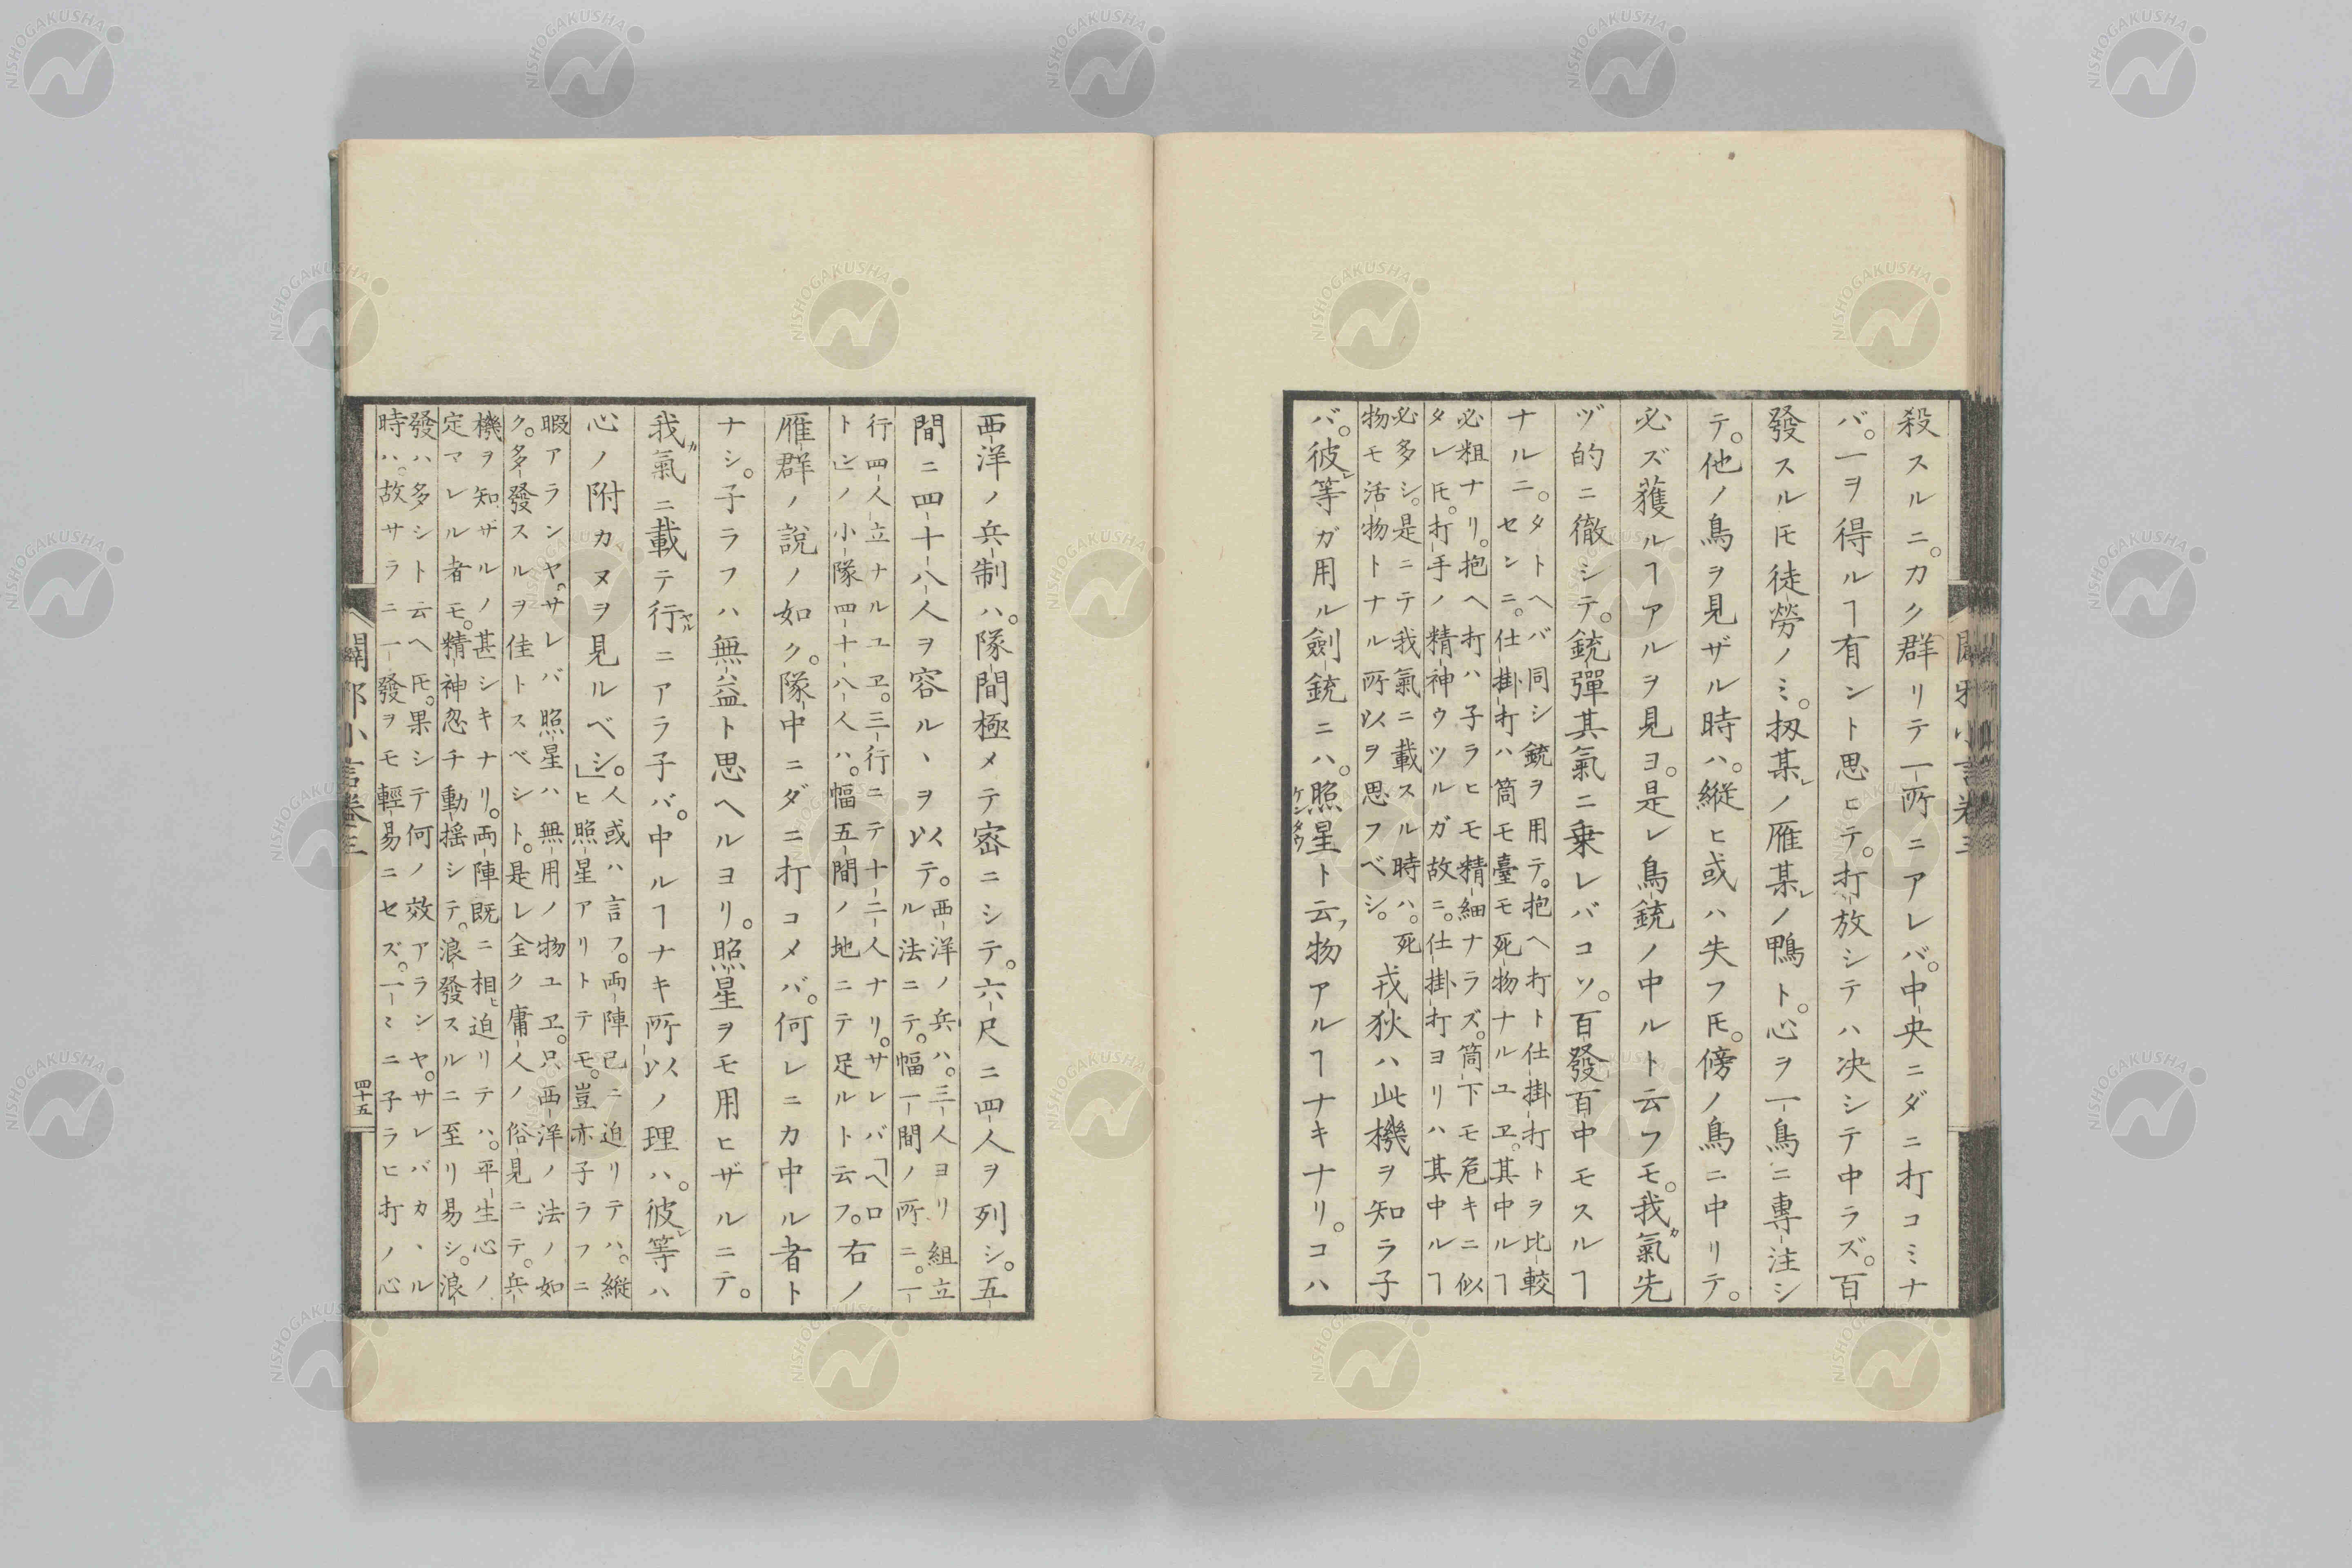 殺スルニ。カク群リテ一所ニアレバ。中央ニダニ打コミナ
バ。一ヲ得ルヿ有ント思ヒテ。打放シテハ决シテ中ラズ。百
發スルㇳモ徒勞ノミ。扨某レノ雁某レノ鴨ト。心ヲ一鳥ニ專注シ
テ。他ノ鳥ヲ見ザル時ハ。縱ヒ或ハ失フㇳモ。傍ノ鳥ニ中リテ。
必ズ獲ルヿアルヲ見ヨ。是レ鳥銃ノ中ルト云フモ。我カ氣先
ヅ的ニ徹シテ。銃彈其氣ニ乗レバコソ。百發百中モスルヿ
ナルニ。
タトヘバ同シ銃ヲ用テ。抱ヘ打ト仕掛打トヲ比較
センニ。仕掛打ハ筒モ臺モ死物ナルユヱ。其中ルヿ
必粗ナリ。抱ヘ打ハ子ラヒモ精細ナラズ。筒下モ危キニ似
タレㇳモ。打手ノ精神ウツルガ故ニ。仕掛打ヨリハ其中ルヿ
必多シ。是ニテ我氣ニ載スル時ハ。死
物モ活物トナル所以ヲ思フベシ。
戎狄ハ此機ヲ知ラ子
バ。彼レ等ガ用ル劍銃ニハ。照星ケンタウト云フ物アルヿナキナリ。コハ
西洋ノ兵制ハ。隊間極メテ密ニシテ。六尺ニ四人ヲ列シ。五
間ニ四十八人ヲ容ルヽヲ以テ。
西洋ノ兵ハ。三人ヨリ組立
ル法ニテ。幅一間ノ所ニ。一
行四人立ナルユヱ。三行ニテ十二人ナリ。サレバ「ヘロ
トン」ノ小隊四十八人ハ。幅五間ノ地ニテ足ルト云フ。
右ノ
雁群ノ說ノ如ク。隊中ニダニ打コメバ。何レニカ中ル者ト
ナシ。子ラフハ無益ト思ヘルヨリ。照星ヲモ用ヒザルニテ。
我カ氣ニ載テ行ヤルニアラ子バ。中ルヿナキ所以ノ理ハ。彼レ等ハ
心ノ附カヌヲ見ルベシ。
人或ハ言フ。両陣已ニ迫リテハ。縱
ヒ照星アリトテモ。豈亦子ラフニ
暇アランヤ。サレバ照星ハ無用ノ物ユヱ。只西洋ノ法ノ如
ク。多發スルヲ佳トスベシト。是レ全ク庸人ノ俗見ニテ。兵
機ヲ知ザルノ甚シキナリ。両陣既ニ相ヒ迫リテハ。平生心ノ
定マレル者モ。精神忽チ動揺シテ。浪發スルニ至リ易シ。浪
發ハ多シト云ヘㇳモ。果シテ何ノ效アランヤ。サレバカヽル
時ハ。故サラニ一發ヲモ輕易ニセズ。一〻ニ子ラヒ打ノ心
闢邪小言卷三
四十五